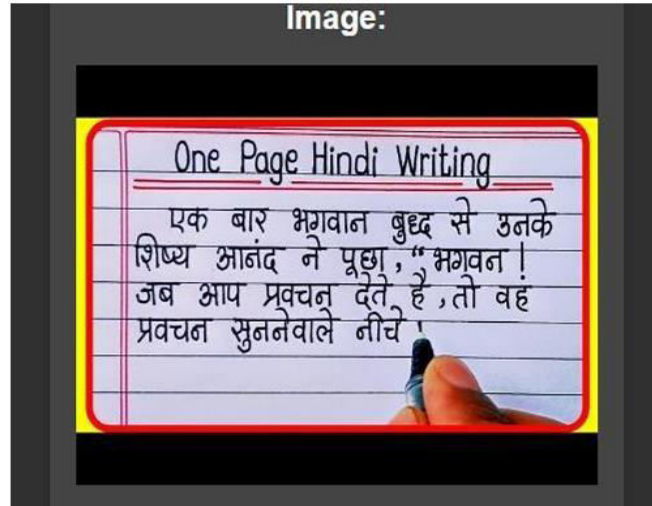 Image:
One Page Hindi Writing
एक बार भगवान बुध्द से उनके
शिष्य आनंद ने पूछा, "भगवन!
जब आप प्रवचन देते है, तो वह
प्रवचन सुननेवाले नीचे